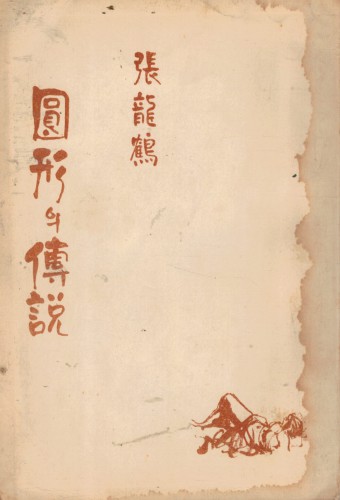 張龍鶴
圓形의傳説